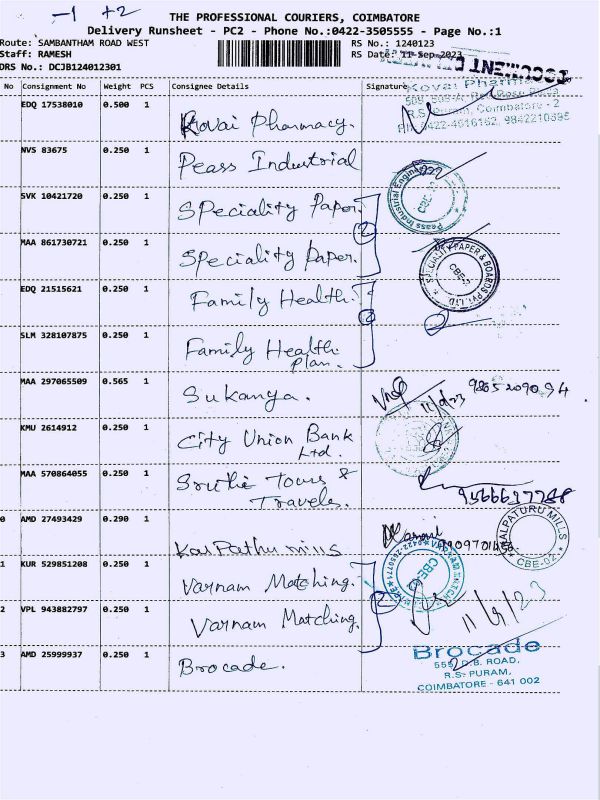 -1 +2
THE PROFESSIONAL COURIERS, COIMBATORE
Delivery Runsheet - PC2 - Phone No.:0422-3505555 - Page No.:1
Route: SAMBANTHAM ROAD WEST RS No.: 1240123
Staff: RAMESH RS Date: 11-Sep-2023
DRS No.: DCJB124012301
No Consignment No Weight PCS Consignee Details Signature
EDQ 17538010 0.500 1 Kovai Pharmacy.
Kovai Pharma
R.S. Puram, Coimbatore - 2
NVS 83675 0.250 1 Peass Industrial
Peass Industrial Engine
CBE-02
SVK 10421720 0.250 1 Speciality Paper.
2
MAA 861730721 0.250 1 Speciality Paper.
SPECIALITY PAPER & BOARDS PVT. LTD.
CBE-2
EDQ 21515621 0.250 1 Family Health.
2
SLM 328107875 0.250 1 Family Health
Plan.
MAA 297065509 0.565 1 Sukanya.
11/9/23
KMU 2614912 0.250 1 City Union Bank
Ltd.
MAA 570864055 0.250 1 Tours &
Travels.
0 AMD 27493429 0.290 1 KalPathu mills
KALPATURU MILLS
CBE-02
1 KUR 529851208 0.250 1 Varnam Matching.
2
CBE-02
2 VPL 943882797 0.250 1 Varnam Matching.
11/9/23
3 AMD 25999937 0.250 1 Brocade.
Brocade
D.B. ROAD,
R.S. PURAM,
COIMBATORE - 641 002